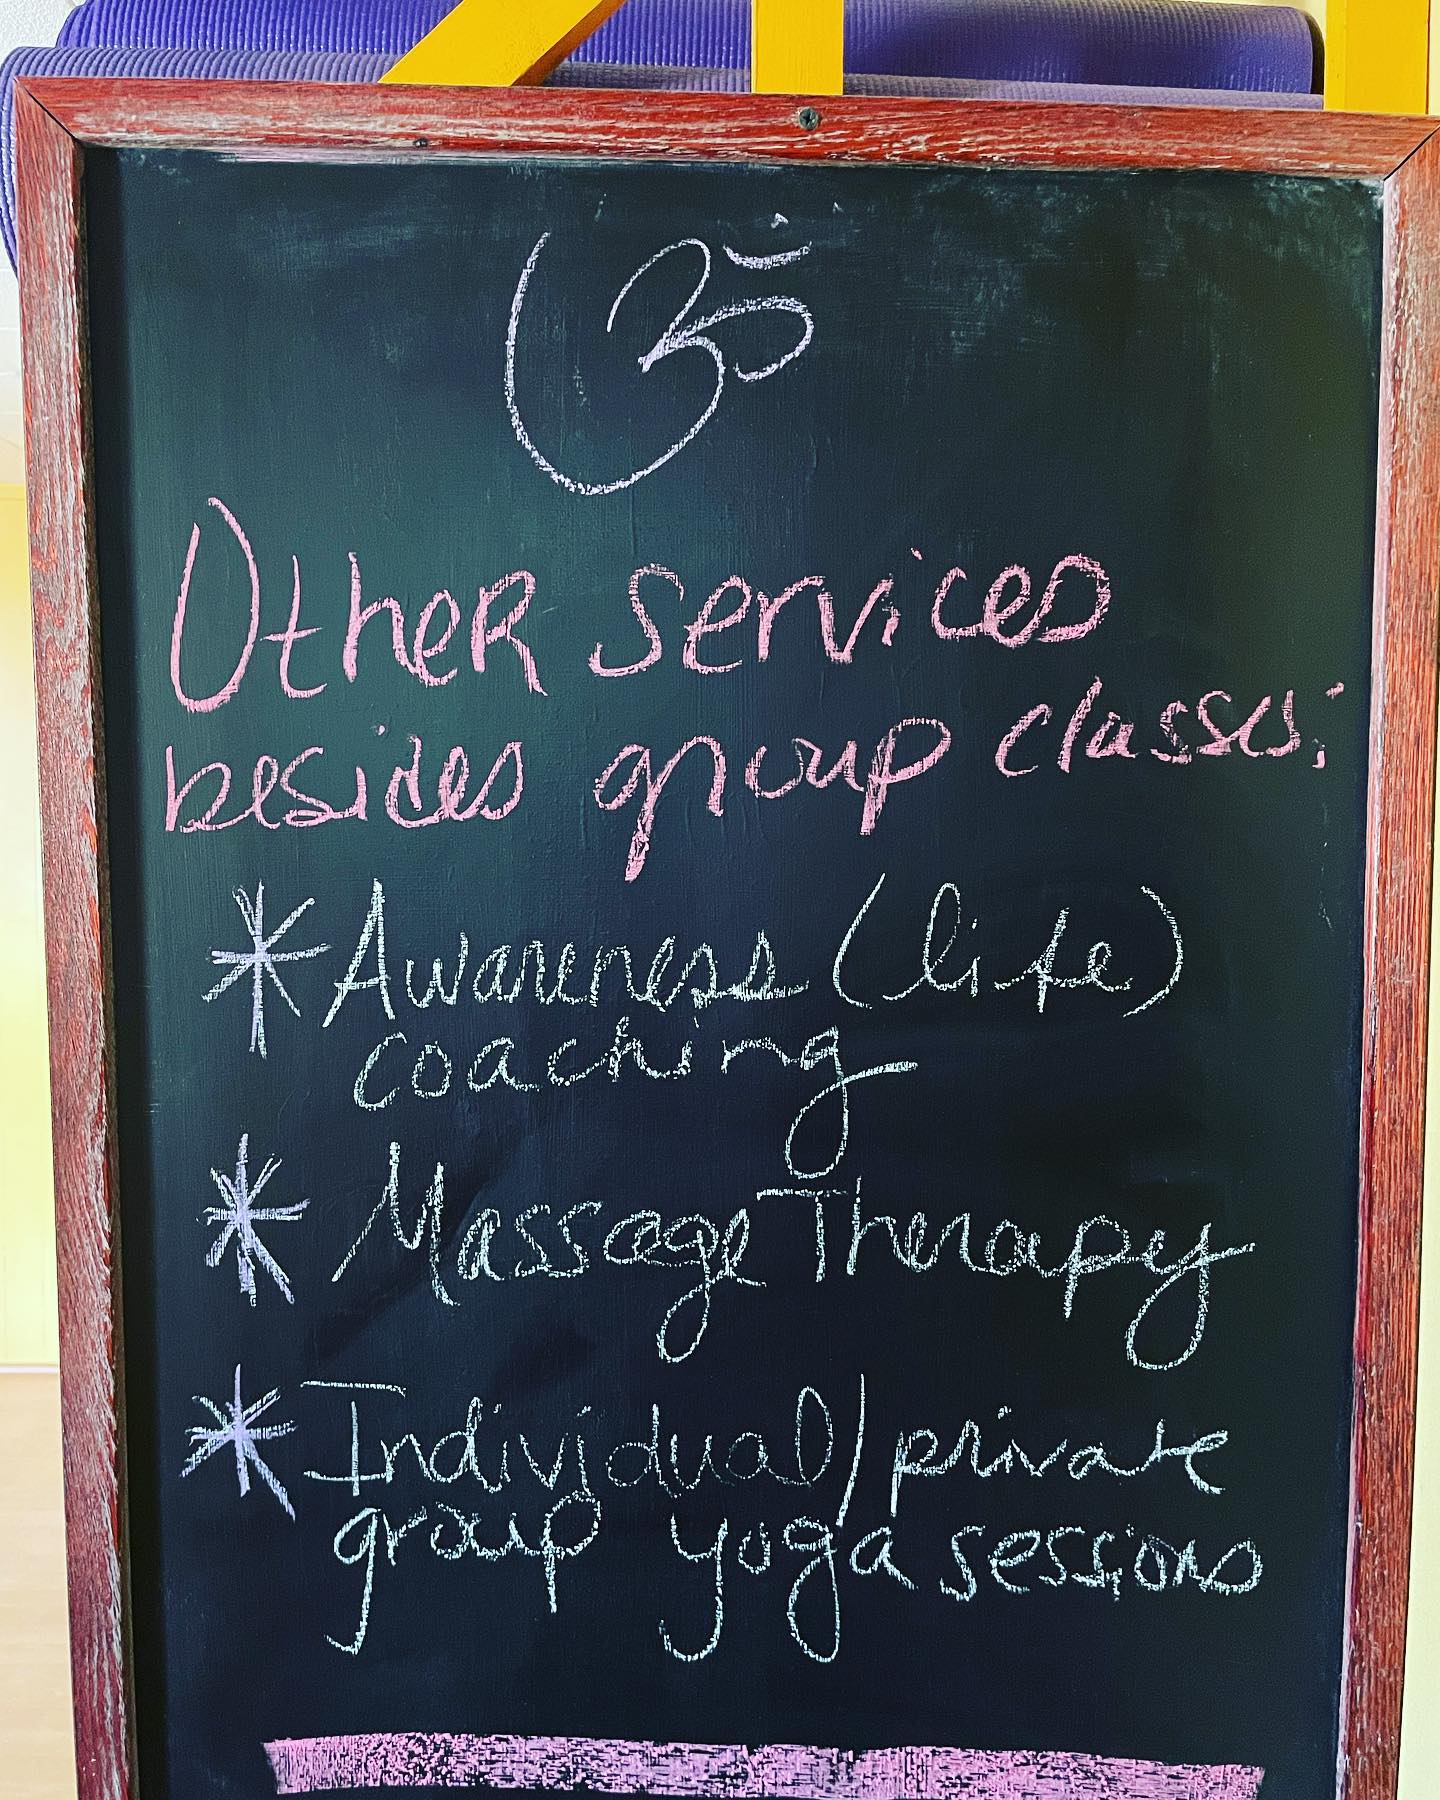 ॐ
Other services
besides group classes:
* Awareness (life)
coaching
* Massage Therapy
* Individual/private
group yoga sessions